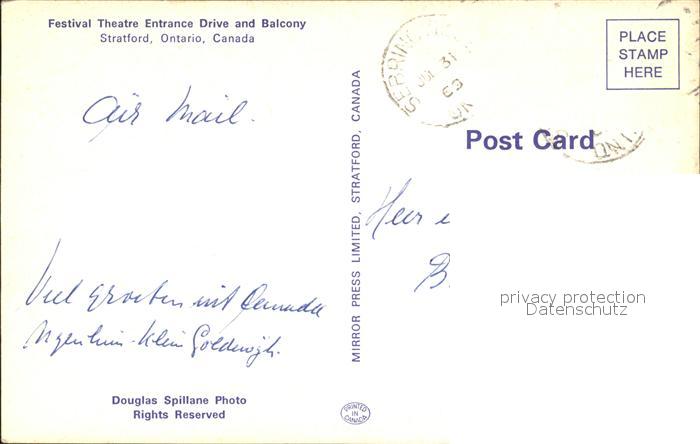 Festival Theatre Entrance Drive and Balcony
Stratford, Ontario, Canada
Air Mail.
Veel groeten uit Canada
Klein Goldewijk.
Douglas Spillane Photo
Rights Reserved
MIRROR PRESS LIMITED, STRATFORD, CANADA
PRINTED
IN
CANADA
SEBRING
31
69
PLACE
STAMP
HERE
Post Card
ONT
Heer e
B.
privacy protection
Datenschutz